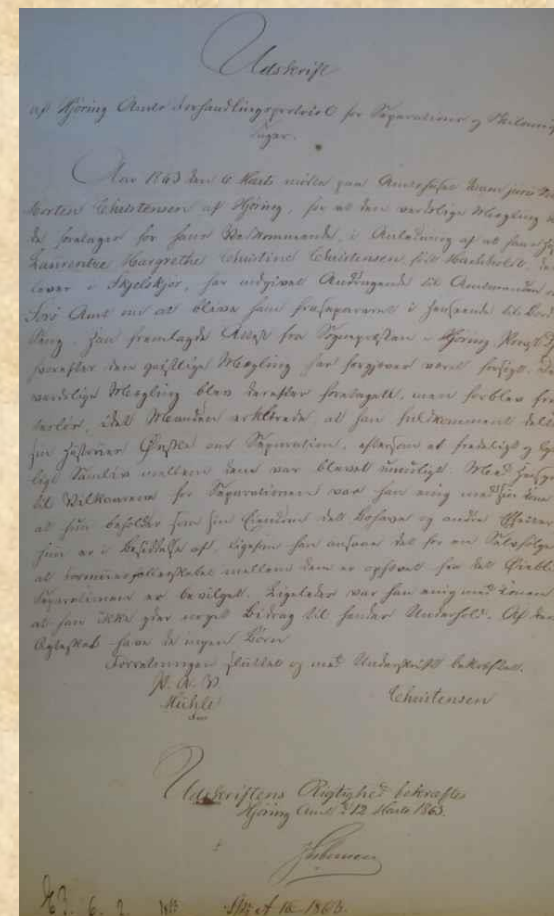 Udskrift
af Hjöring Amts Forhandlingsprotocol for Separations og
Sager.
Aar 1863 den 6 Marts mödte paa Amtshuset
Morten Christensen af Hjöring, for at den verdslige Mægling
de foretages for hans Vedkommende, i Anledning af at hans
Laurentze Margrethe Christine Christensen, föd Machholdt, der
lever i Skjelskjør, har indgivet Andragende til Amtmanden
Sorö Amt om at blive ham fraseparered i Henseende til Bord
Seng. Han fremlagde Attest fra Sognepræsten i Hjöring
hvorefter den geistlige Mægling har forgjeves været forsögt. Den
verdslige Mægling blev derefter foretaget, men forblev
idet Manden erklærede, at han fuldkomment
sin Hustrues Ønske om Separation, eftersom et fredeligt og
ligt Samliv mellem dem var blevet umuligt. Med Hensyn
til Vilkaarene for Separationen var han enig med sin Kone
at hun beholder som sin Eiendom det Bohave og andre Effecter
hun er i Besiddelse af, ligesom han ansaae det for en Selvfölge
at Formuefælledsskabet mellem dem er ophævet fra det Øieblik
Separationen er bevilget. Ligeledes var han enig med Konen
at han ikke giver noget Bidrag til hendes Underhold. Af
Ægteskab have de ingen Börn
Forretningen sluttet og med Underskrift bekræftet.
Christensen
Udskriftens Rigtighed bekræftes
Hjöring Amt d 12 Marts 1863.
1863.